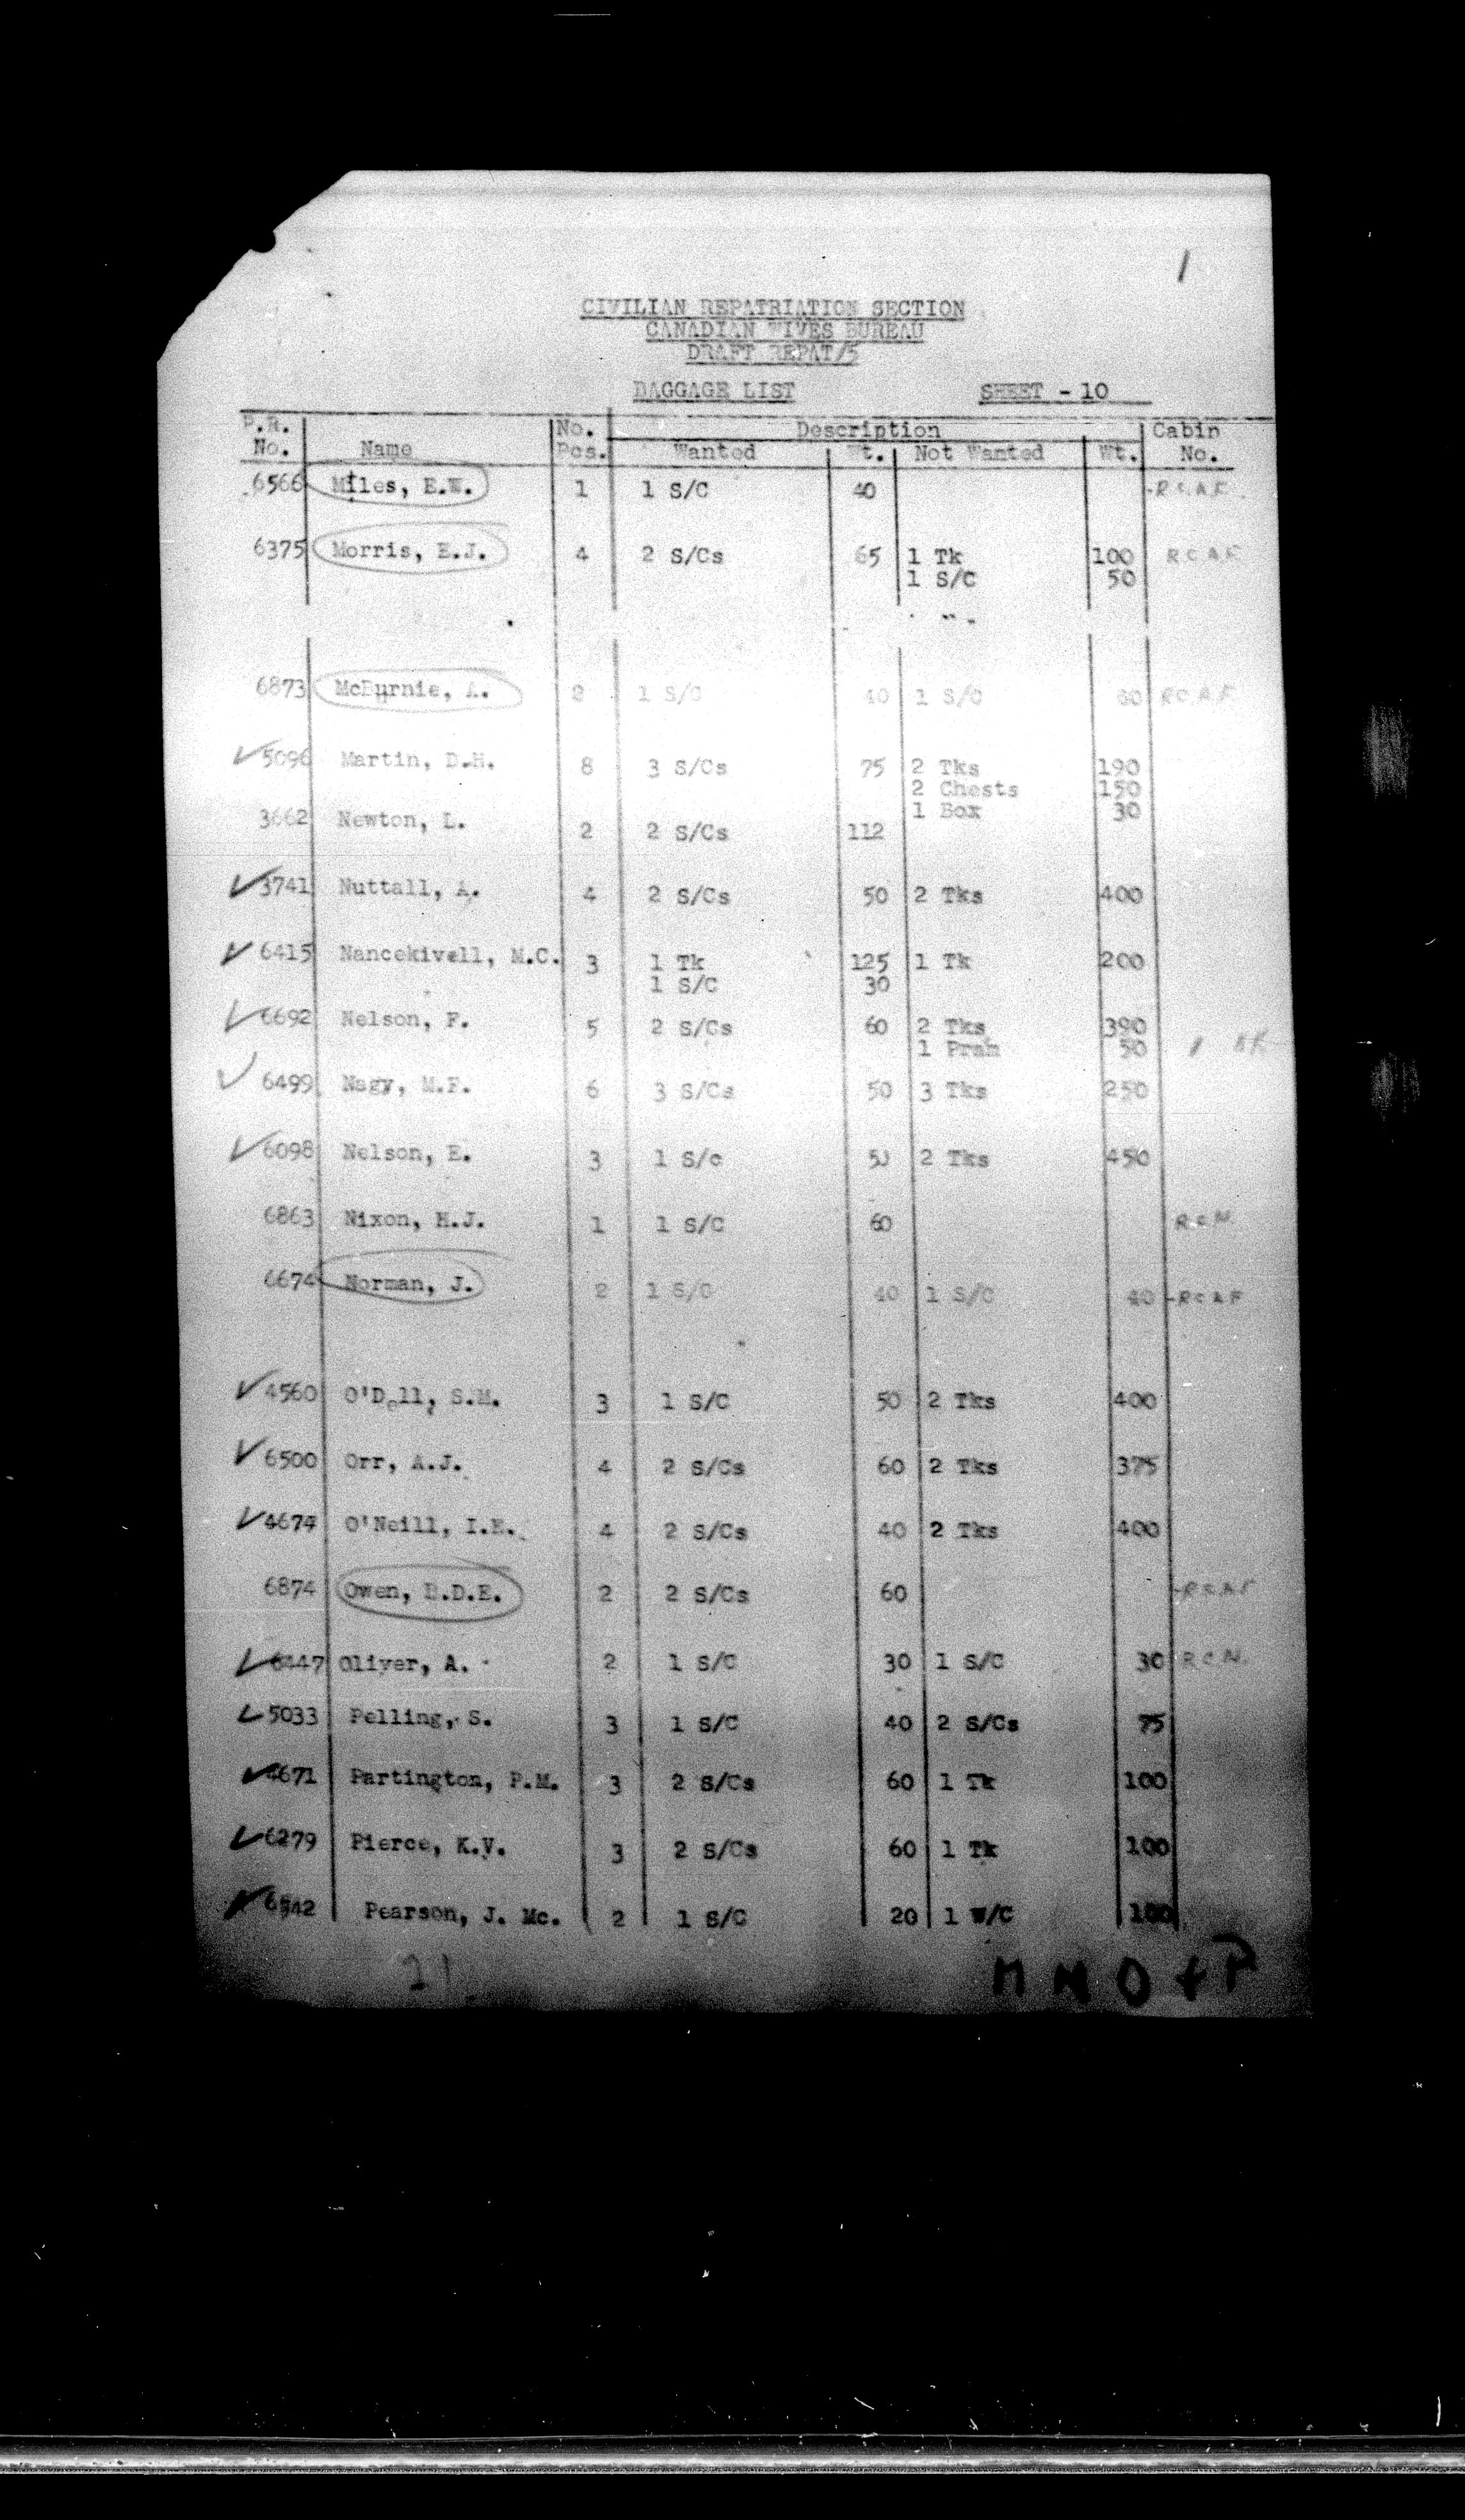 1
CIVILIAN REPATRIATION SECTION
CANADIAN WIVES BUREAU
DRAFT REPAT/5
BAGGAGE LIST SHEET - 10
P.R. No. Description Cabin
No. Name Pcs. Wanted Wt. Not Wanted Wt. No.
6566 Miles, E.W. 1 1 S/C 40 -R.C.A.F.
6375 Morris, E.J. 4 2 S/Cs 65 1 Tk 100 R.C.A.F.
1 S/C 50
6873 McBurnie, A. 2 1 S/C 40 1 S/C R.C.A.F.
5096 Martin, D.H. 8 3 S/Cs 75 2 Tks 190
2 Chests 150
1 Box 30
3662 Newton, L. 2 2 S/Cs 112
3741 Nuttall, A. 4 2 S/Cs 50 2 Tks 400
6415 Nancekivell, M.C. 3 1 Tk 125 1 Tk 200
1 S/C 30
6692 Nelson, F. 5 2 S/Cs 60 2 Tks 390
1 Pram 50
6499 Nagy, M.F. 6 3 S/Cs 50 3 Tks 250
6098 Nelson, E. 3 1 S/c 50 2 Tks 450
6863 Nixon, H.J. 1 1 S/C 60 R.C.N.
6674 Norman, J. 2 1 S/C 40 1 S/C 40 -RCAF
4560 O'Dell, S.M. 3 1 S/C 50 2 Tks 400
6500 Orr, A.J. 4 2 S/Cs 60 2 Tks 375
4674 O'Neill, I.E. 4 2 S/Cs 40 2 Tks 400
6874 Owen, E.D.E. 2 2 S/Cs 60 -RCAF
6447 Oliver, A. 2 1 S/C 30 1 S/C 30 R.C.N.
5033 Pelling, S. 3 1 S/C 40 2 S/Cs 75
4671 Partington, P.M. 3 2 S/Cs 60 1 Tk 100
6279 Pierce, K.V. 3 2 S/Cs 60 1 Tk 100
6542 Pearson, J. Mc. 2 1 S/C 20 1 W/C 100
21 M N O + P